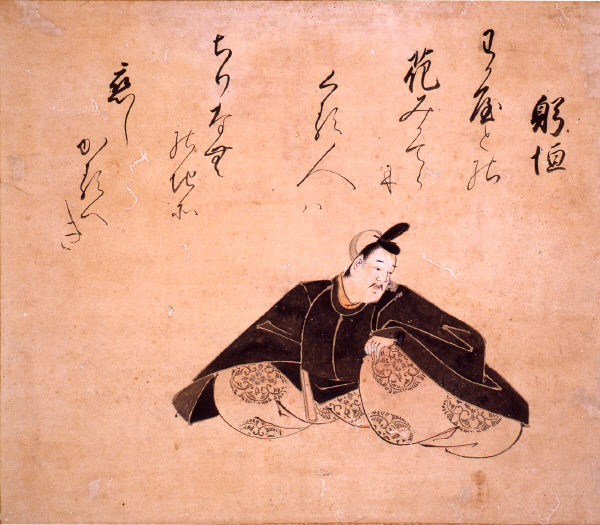 躬恒
わか屋との
花みかてらに
くる人ハ
ちりなむ
のちそ
恋し
かるへき